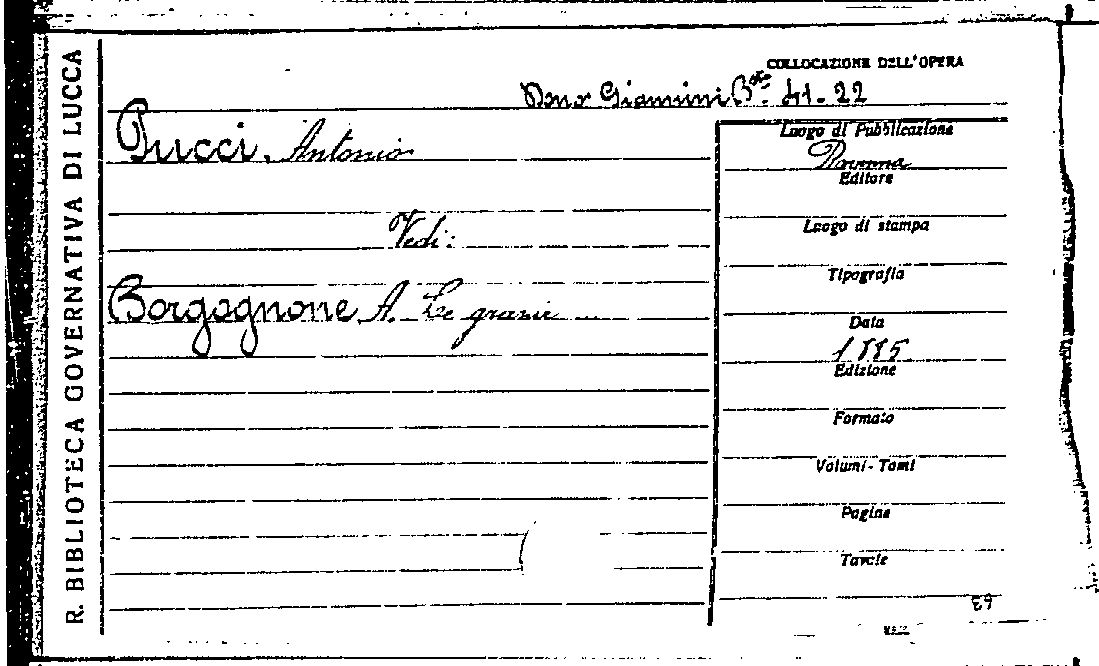 R. BIBLIOTECA GOVERNATIVA DI LUCCA
COLLOCAZIONE DELL'OPERA
Dono Giannini Bta. 41-22
Pucci, Antonio
Vedi:
Borgognone A. Le grazie ...
Luogo di Pubblicazione
Ravenna
Editore
Luogo di stampa
Tipografia
Data
1885
Edizione
Formato
Volumi - Tomi
Pagine
Tavole